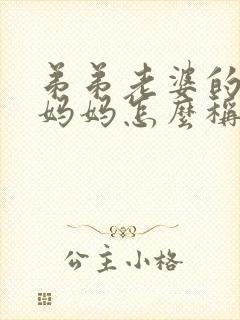 弟弟老婆的
妈妈怎麼稱
公主小格